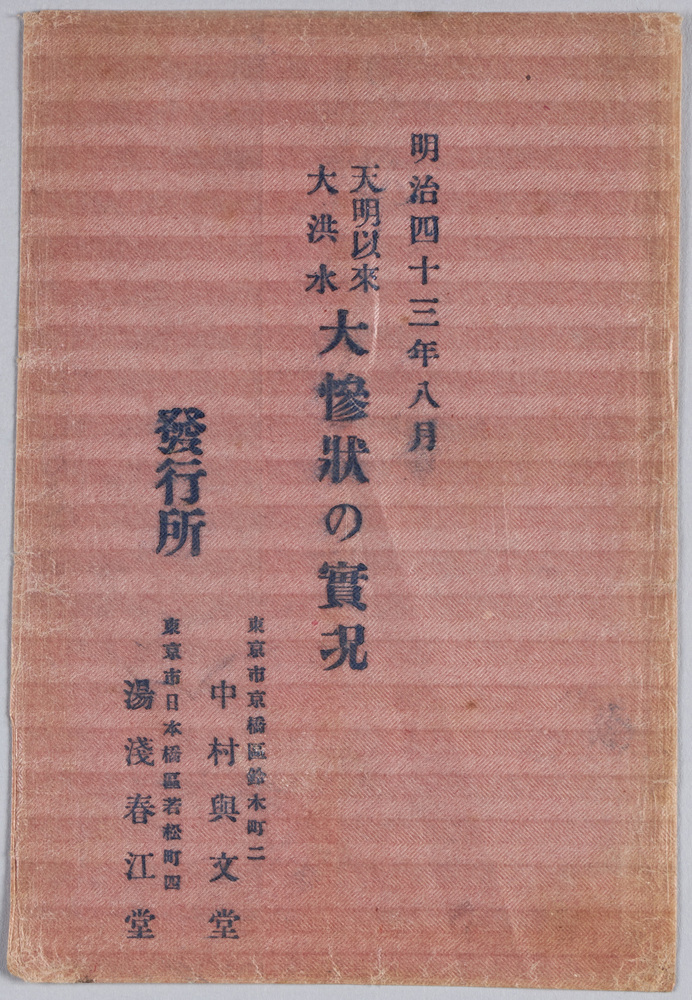 明治四十三年八月
天明以來
大洪水
大慘狀の實況
發行所
東京市京橋區鈴木町二
中村與文堂
東京市日本橋區若松町四
湯淺春江堂